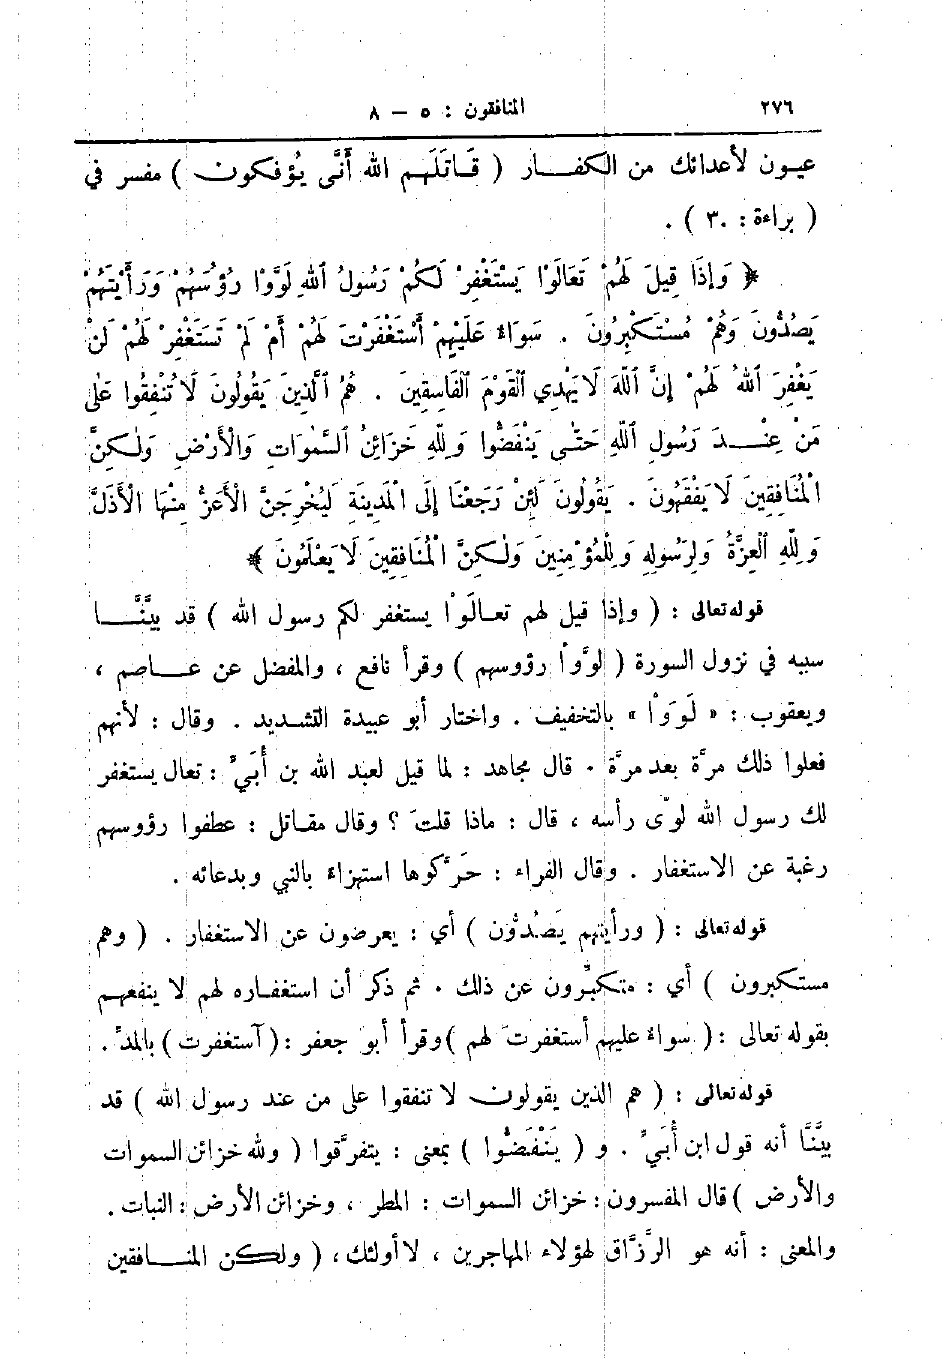 ٢٧٦
المنافقون : ٥ – ٨
عيـون لأعدائك من الكفـــار ( قَـاتَلَهـم الله أنَّى يُؤفكون ) مفسر في
( براءة : ٣٠ ) .
﴿ وَإِذَا قِيلَ لَهُمْ تَعَالَوْا يَسْتَغْفِرْ لَكُمْ رَسُولُ اللهِ لَوَّوْا رُؤُسَهُمْ وَرَأَيْتَهُمْ
يَصُدُّونَ وَهُمْ مُسْتَكْبِرُونَ . سَوَاءٌ عَلَيْهِمْ أَسْتَغْفَرْتَ لَهُمْ أَمْ لَمْ تَسْتَغْفِرْ لَهُمْ لَنْ
يَغْفِرَ اللهُ لَهُمْ إِنَّ اللهَ لَا يَهْدِي الْقَوْمَ الْفَاسِقِينَ . هُمُ الَّذِينَ يَقُولُونَ لَا تُنْفِقُوا عَلَى
مَنْ عِنْـــدَ رَسُولِ اللهِ حَتَّى يَنْفَضُّوا وَلِلّٰهِ خَزَائِنُ السَّمٰوَاتِ وَالْأَرْضِ وَلٰكِنَّ
الْمُنَافِقِينَ لَا يَفْقَهُونَ . يَقُولُونَ لَئِنْ رَجَعْنَا إِلَى الْمَدِينَةِ لَيُخْرِجَنَّ الْأَعَزُّ مِنْهَا الْأَذَلَّ
وَلِلّٰهِ الْعِزَّةُ وَلِرَسُولِهِ وَلِلْمُؤْمِنِينَ وَلٰكِنَّ الْمُنَافِقِينَ لَا يَعْلَمُونَ ﴾
قوله تعالى : ( وإذا قيل لهم تعـالَوْا يستغفر لكم رسول الله ) قد بيَّنَّــا
سببه في نزول السورة ( لووْا رؤوسهم ) وقرأ نافع ، والمفضل عن عـــاصم ،
ويعقوب : « لَوَوْا » بالتخفيف . واختار أبو عبيدة التشديد . وقال : لأنهم
فعلوا ذلك مرَّة بعد مرَّة . قال مجاهد : لما قيل لعبد الله بن أُبَيّ : تعال يستغفر
لك رسول الله لوّى رأسه ، قال : ماذا قلتَ ؟ وقال مقـاتل : عطفوا رؤوسهم
رغبة عن الاستغفار . وقال الفراء : حَرَّكوها استهزاءً بالنبي وبدعائه .
قوله تعالى : ( ورأيتهم يَصُدُّون ) أي : يعرضون عن الاستغفار . ( وهم
مستكبرون ) أي : متكبِّرون عن ذلك . ثم ذكر أن استغفـاره لهم لا ينفعهـم
بقوله تعالى : ( سواءٌ عليهم أستغفرتَ لهم ) وقرأ أبو جعفر : ( آستغفرت ) بالمدّ .
قوله تعالى : ( هم الذين يقولون لا تنفقوا على من عند رسول الله ) قد
بيَّنَّا أنه قول ابن أُبَيّ . و ( يَنْفَضُّوا ) بمعنى : يتفرَّقوا ( ولله خزائن السموات
والأرض ) قال المفسرون : خزائن السموات : المطر ، وخزائن الأرض : النبات .
والمعنى : أنه هو الرَّزَّاق لهؤلاء المهاجرين ، لا أولئك ، ( ولـكـن المنــافقين